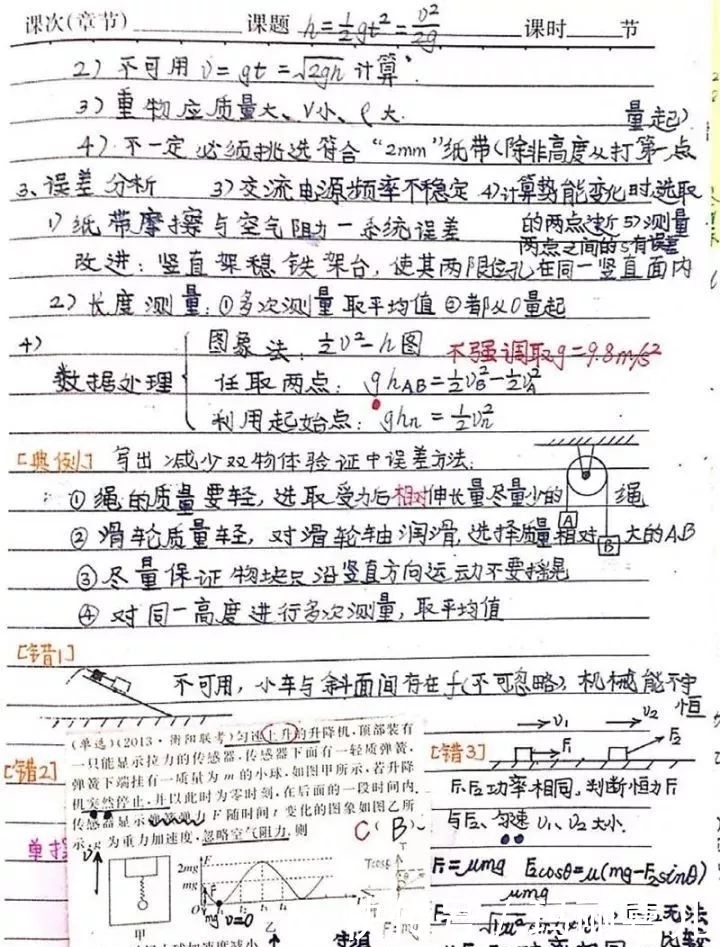 课次(章节)________课题 h=½gt²=v²/2g 课时____节
2) 不可用 v=gt=√2gh 计算.
3) 重物应质量大、V小、ρ大.
量起)
4) 不一定必须挑选符合“2mm”纸带(除非高度从打第一点
3、误差分析 3)交流电源频率不稳定 4)计算势能变化时选取
1) 纸带摩擦与空气阻力—系统误差 的两点过近 5)测量
两点之间的s有误差
改进: 竖直架稳铁架台, 使其两限位孔在同一竖直面内
2) 长度测量: ①多次测量取平均值 ②都从0量起
4)
数据处理
图象法: ½v²-h图 不强调取g=9.8m/s²
任取两点: ghAB=½vB²-½vA²
利用起始点: ghn=½vn²
[典例] 写出减少双物体验证中误差方法:
①绳的质量要轻, 选取受力后相对伸长量尽量少的绳
②滑轮质量轻, 对滑轮轴润滑, 选择质量相对大的A,B
A
B
③尽量保证物块只沿竖直方向运动不要摇晃
④对同一高度进行多次测量, 取平均值
[错1]
不可用, 小车与斜面间存在f(不可忽略), 机械能不守
恒
[错2]
(单选)(2013·衡阳联考)匀速上升的升降机,顶部装有
一只能显示拉力的传感器,传感器下面有一轻质弹簧,
弹簧下端挂有一质量为 m 的小球,如图甲所示,若升降
机突然停止,并以此时为零时刻,在后面的一段时间内,
传感器显示弹簧弹力 F 随时间 t 变化的图象如图乙所
示,g 为重力加速度,忽略空气阻力,则
C (B)
v
F
2mg
mg
O t₁ t₂ t₃ t₄ t
mg v=0
甲
乙
Tcosθ
T
F=mg
[错3]
v₁ v₂
F₁ F₂
F₁、F₂功率相同, 判断恒力F₁
与F₂、匀速 v₁、v₂大小.
F₁=μmg F₂cosθ=μ(mg-F₂sinθ)
μmg
无法